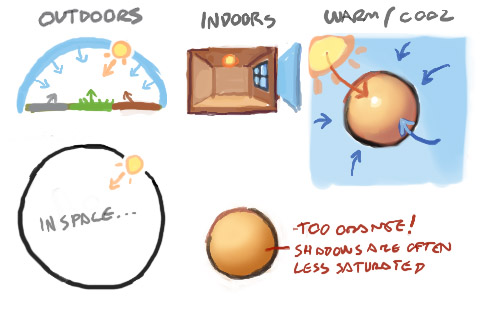 OUTDOORS
INDOORS
WARM/COOL
IN SPACE...
-TOO ORANGE!
SHADOWS ARE OFTEN
LESS SATURATED